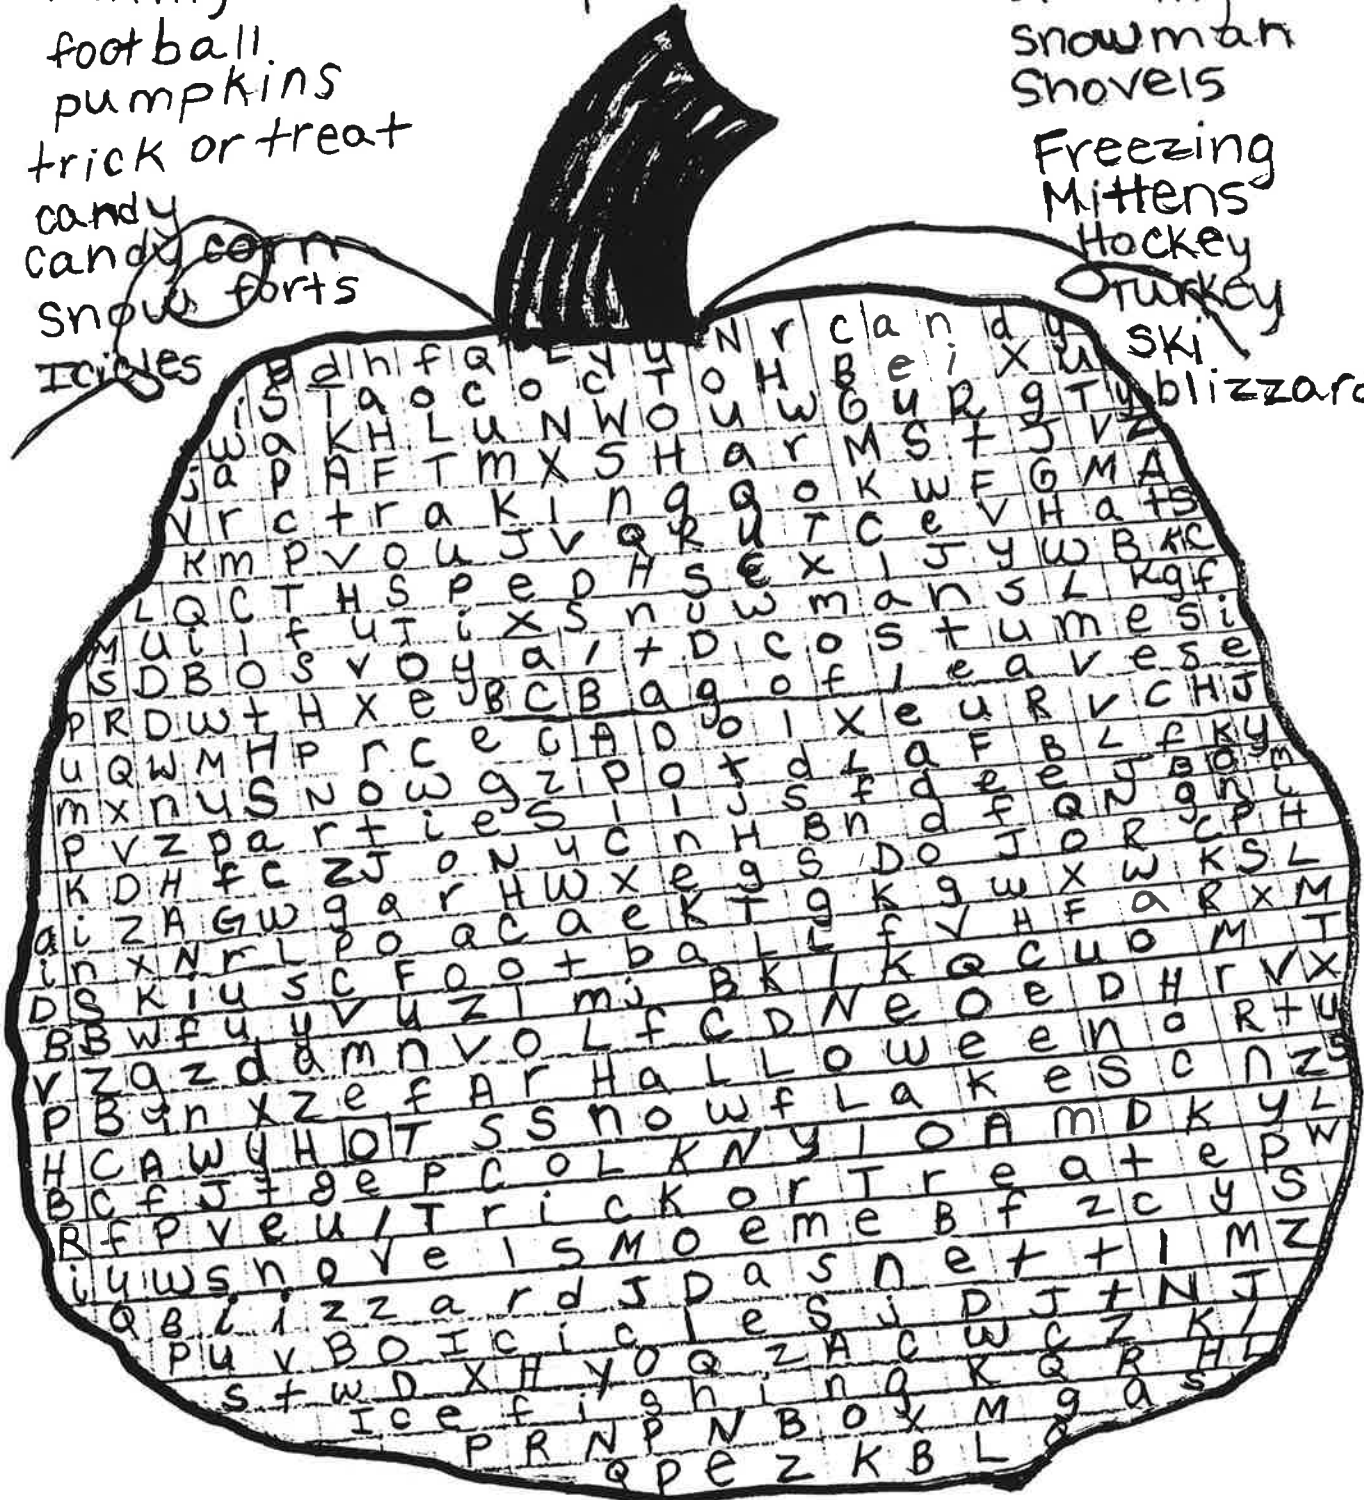 football
pumpkins
trick or treat
candy
candy corn
snow forts
Icicles
snowman
Shovels
Freezing
Mittens
Hockey
Turkey
Ski
blizzard
N r c a n d y
w a K H L u N W O u w G u R g T y
j a P A F T m X S H a r M S t J V Z
V r c t r a k i n g g o K w F G M A
K m P V O u J V Q R U T C e V H a t S
L Q C T H S P e D H S E X I J Y W B K C
M U i l f u T i X S n o w m a n S L K g f
S D B O S V O y a / t D C o s t u m e s i
P R D W t H X e y B C B a g o f l e a v e s e
u Q W M H P r c e C A D O I X e u R V C H J
m x n y S N O w g z P O t d L a F B L f K y
P V Z p a r t i e S I I J S f d e e J B O m
K D H f C Z J O N y C n H B n d f Q N g n L
a i Z A G W g a r H W X e g S D O J O R C P H
i n x N r L P O a C a e K T g K g w X W K S L
D S K i y S C F O O t b a L L f V H F a R X M
B B W f u y V u Z I m j B K I K Q C u O M T
V Z g z d a m n V O L f C D N e O e D H r V X
P B y n X Z e f A r H a L L O w e e n o R t u
H C A W Y H O T S S n o w f L a K e S C n Z S
B C f J t g e P C O L K N y I O A m D K y L
R f P V e u / T r i c K o r T r e a t e P W
i y w s h o v e l S M O e m e B f z c y S
Q B l i z z a r d J D a S n e t t I M Z
P u V B O I c i c l e S j D J t N J
S t w D X H Y O Q Z A C W C Z K I
I c e f i s h i n g K Q R H L
P R N P N B O X M g a s
Q P e z K B L Q